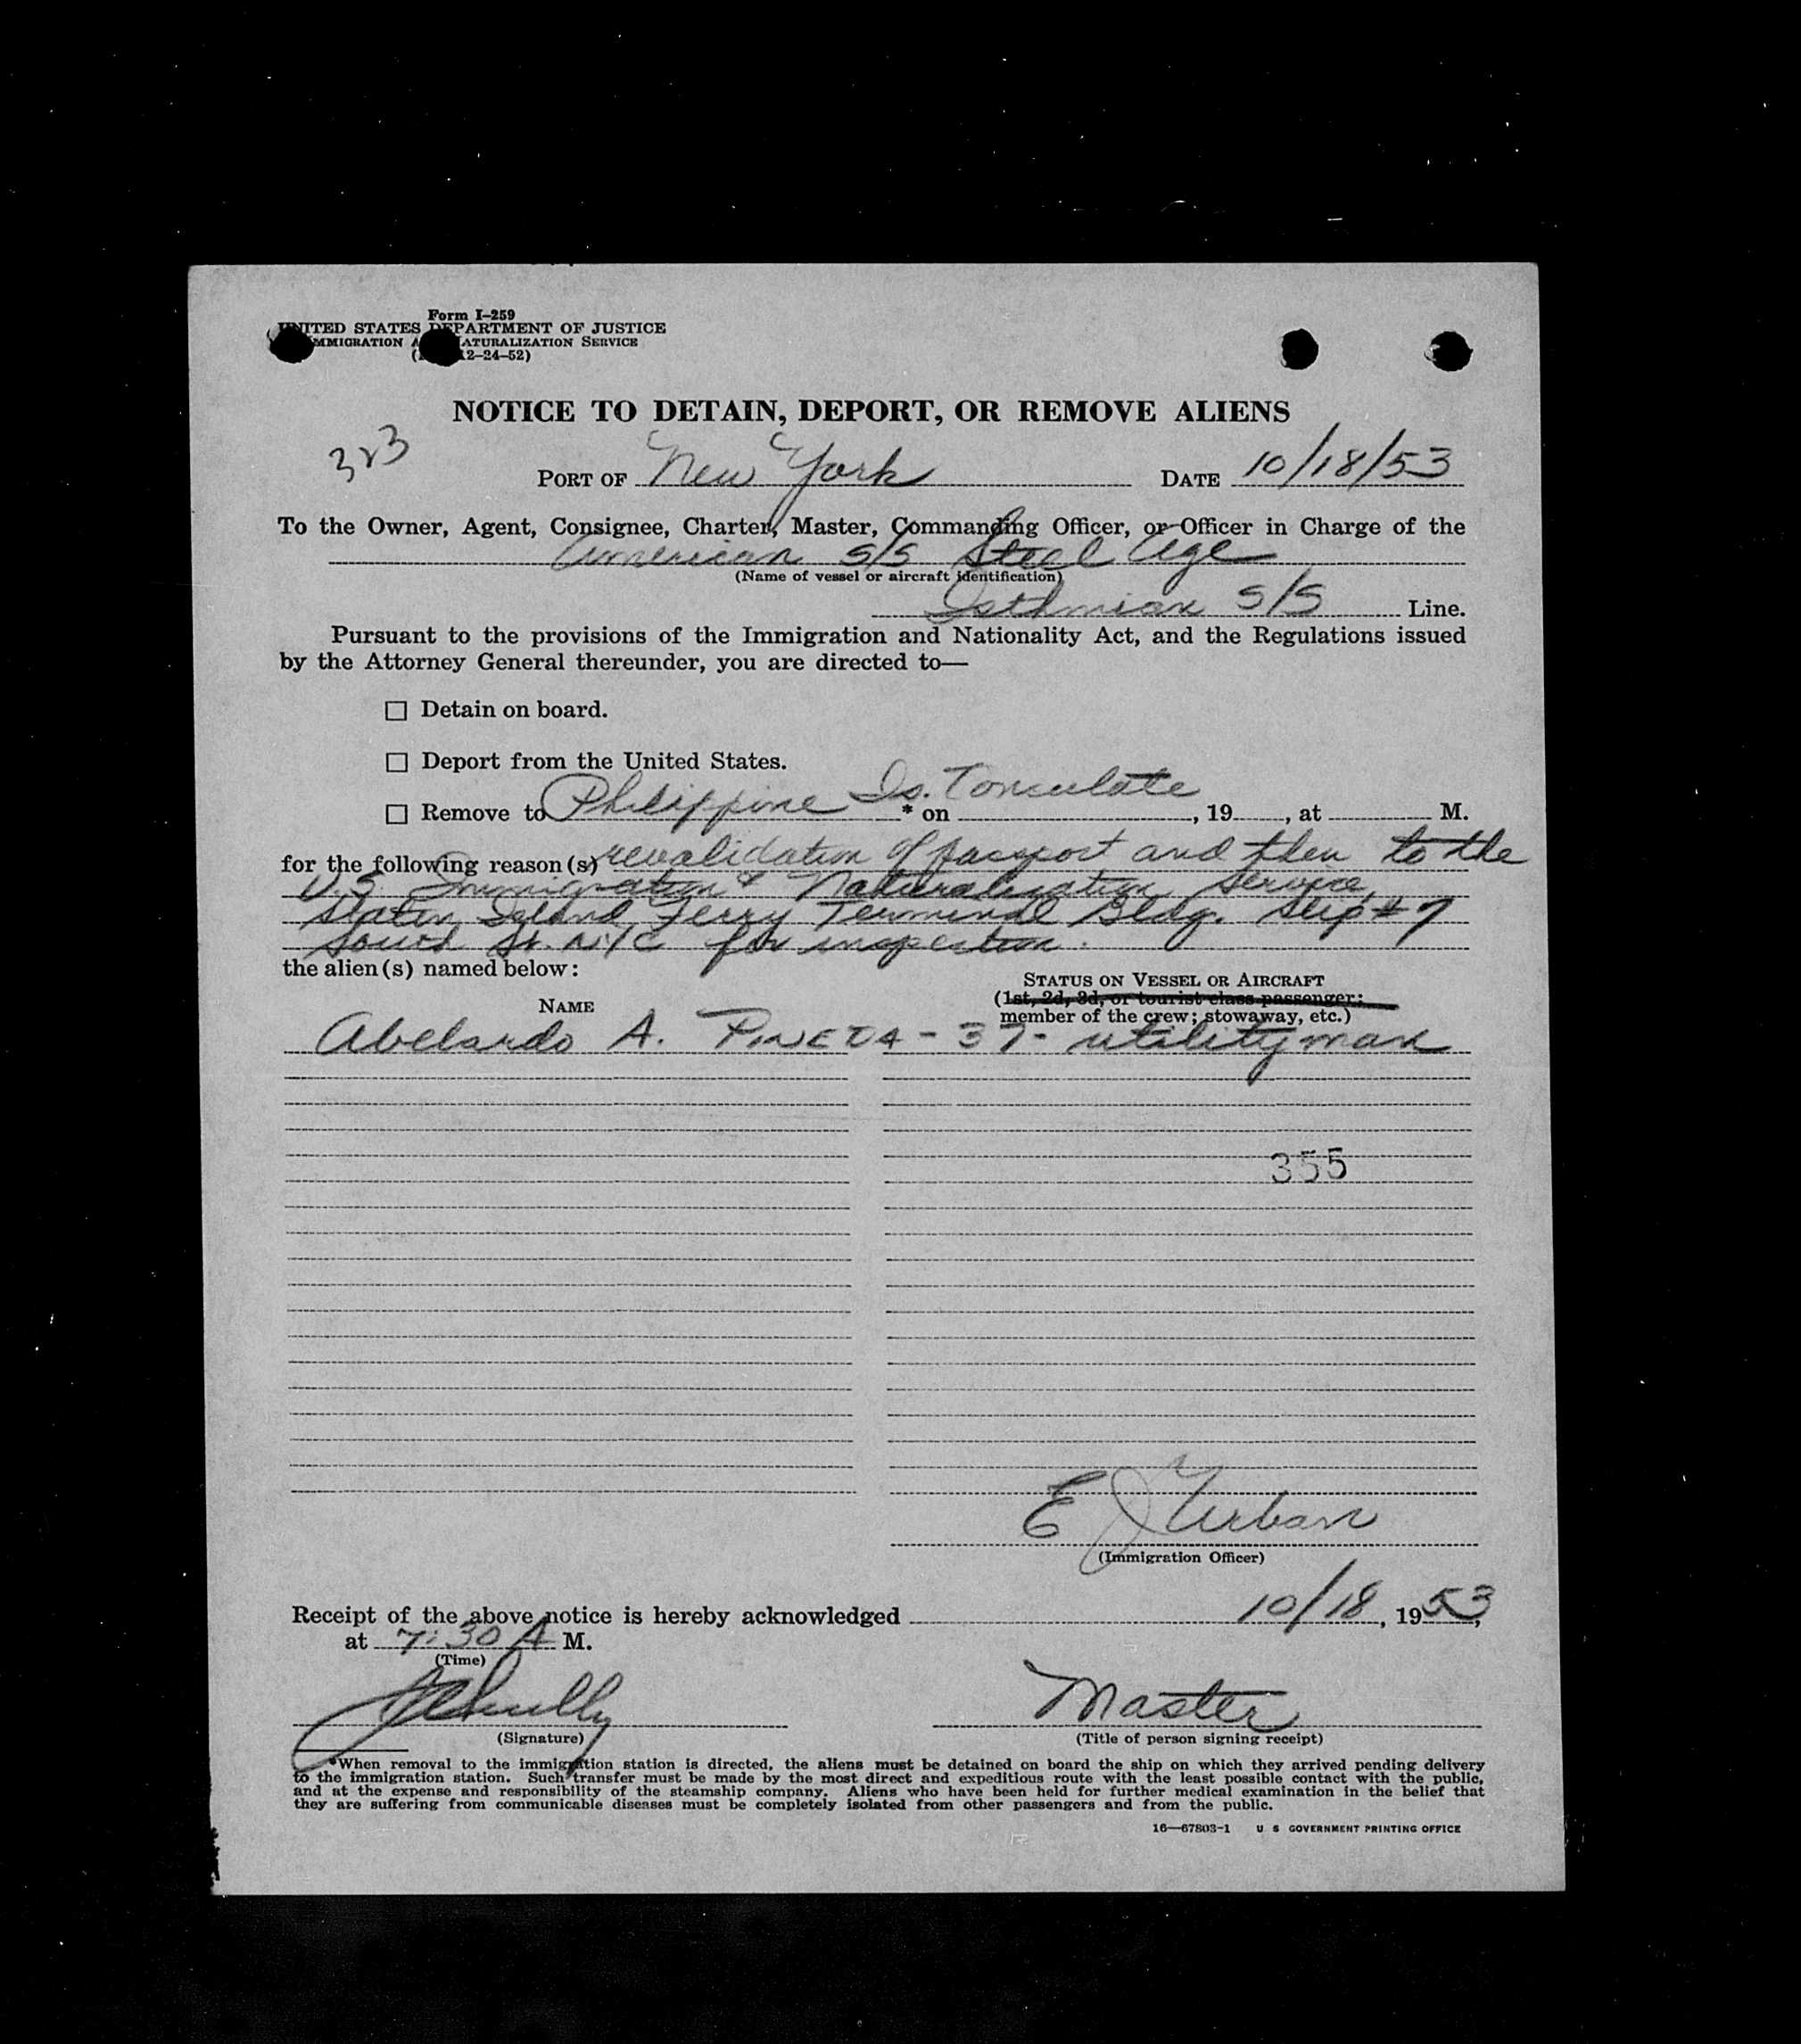 Form I-259
UNITED STATES DEPARTMENT OF JUSTICE
IMMIGRATION A NATURALIZATION SERVICE
( 12-24-52)
NOTICE TO DETAIN, DEPORT, OR REMOVE ALIENS
323
PORT OF New York DATE 10/18/53
To the Owner, Agent, Consignee, Charter, Master, Commanding Officer, or Officer in Charge of the
American S/S Steel Age
(Name of vessel or aircraft identification)
Isthmian S/S Line.
Pursuant to the provisions of the Immigration and Nationality Act, and the Regulations issued
by the Attorney General thereunder, you are directed to—
☐ Detain on board.
☐ Deport from the United States.
☐ Remove to Philippine Is. Consulate * on , 19 , at M.
for the following reason(s) revalidation of passport and then to the
U.S. Immigration & Naturalization Service,
Staten Island Ferry Terminal Bldg. Slip # 7
South St. NYC for inspection.
the alien(s) named below:
STATUS ON VESSEL OR AIRCRAFT
NAME (1st, 2d, 3d, or tourist class passenger;
member of the crew; stowaway, etc.)
Abelardo A. PINEDA - 37 - utilityman
355
E J Urban
(Immigration Officer)
Receipt of the above notice is hereby acknowledged 10/18, 1953,
at 7:30 A M.
(Time)
Master
(Signature) (Title of person signing receipt)
*When removal to the immigration station is directed, the aliens must be detained on board the ship on which they arrived pending delivery
to the immigration station. Such transfer must be made by the most direct and expeditious route with the least possible contact with the public,
and at the expense and responsibility of the steamship company. Aliens who have been held for further medical examination in the belief that
they are suffering from communicable diseases must be completely isolated from other passengers and from the public.
16—67803-1 U S GOVERNMENT PRINTING OFFICE